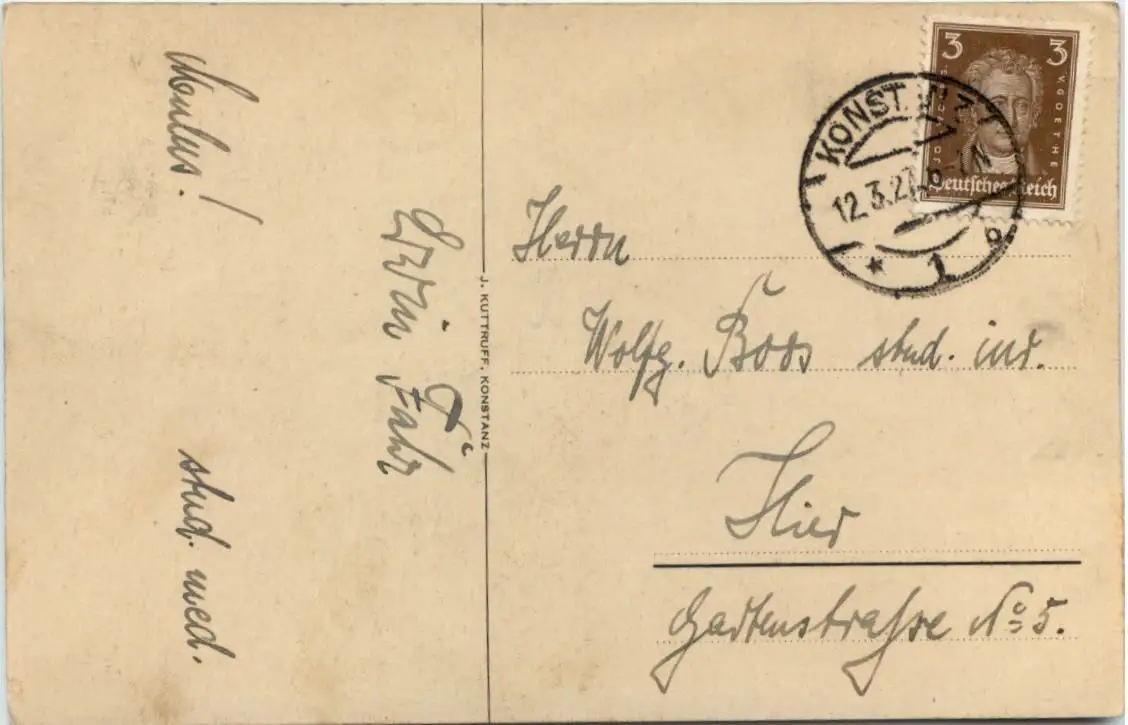 Mulus!
Erwin Fahr
stud. med.
J. KUTTRUFF, KONSTANZ
3 3
V. GOETHE
Deutsches Reich
KONST
12.3.27
* 1 o
Herrn
Wolfg. Boos stud. iur.
Hier
Gartenstraße No 5.